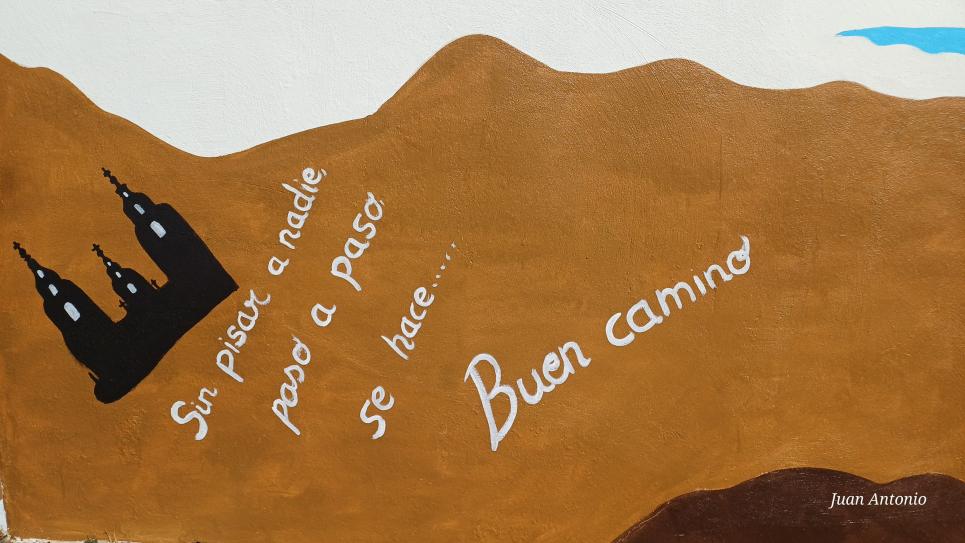 Sin pisar a nadie,
paso a paso,
se hace.....
Buen camino
Juan Antonio